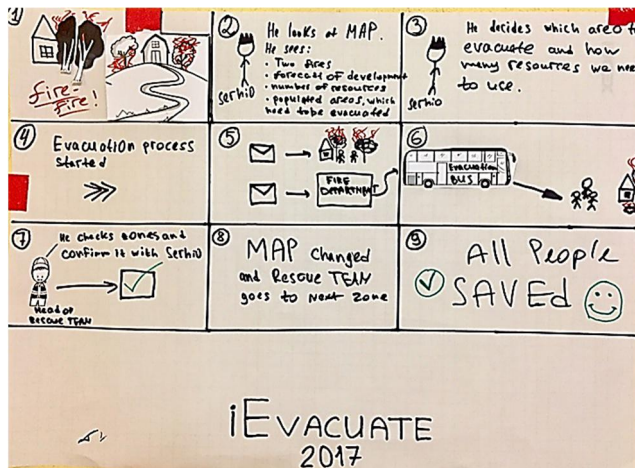 1
fire-
fire!
2
He looks at MAP.
He sees:
• Two fires
• forecast of development
• number of resources
• populated areas, which
need to be evacuated
serhio
3
He decides which area to
evacuate and how
many resources we need
to use.
serhio
4
Evacuation process
started
5
FIRE
DEPARTMENT
6
Evacuation
BUS
7
He checks zones and
confirm it with Serhio
Head of
RESCUE TEAM
8
MAP changed
and Rescue TEAM
goes to next zone
9
All People
SAVEd
iEVACUATE
2017